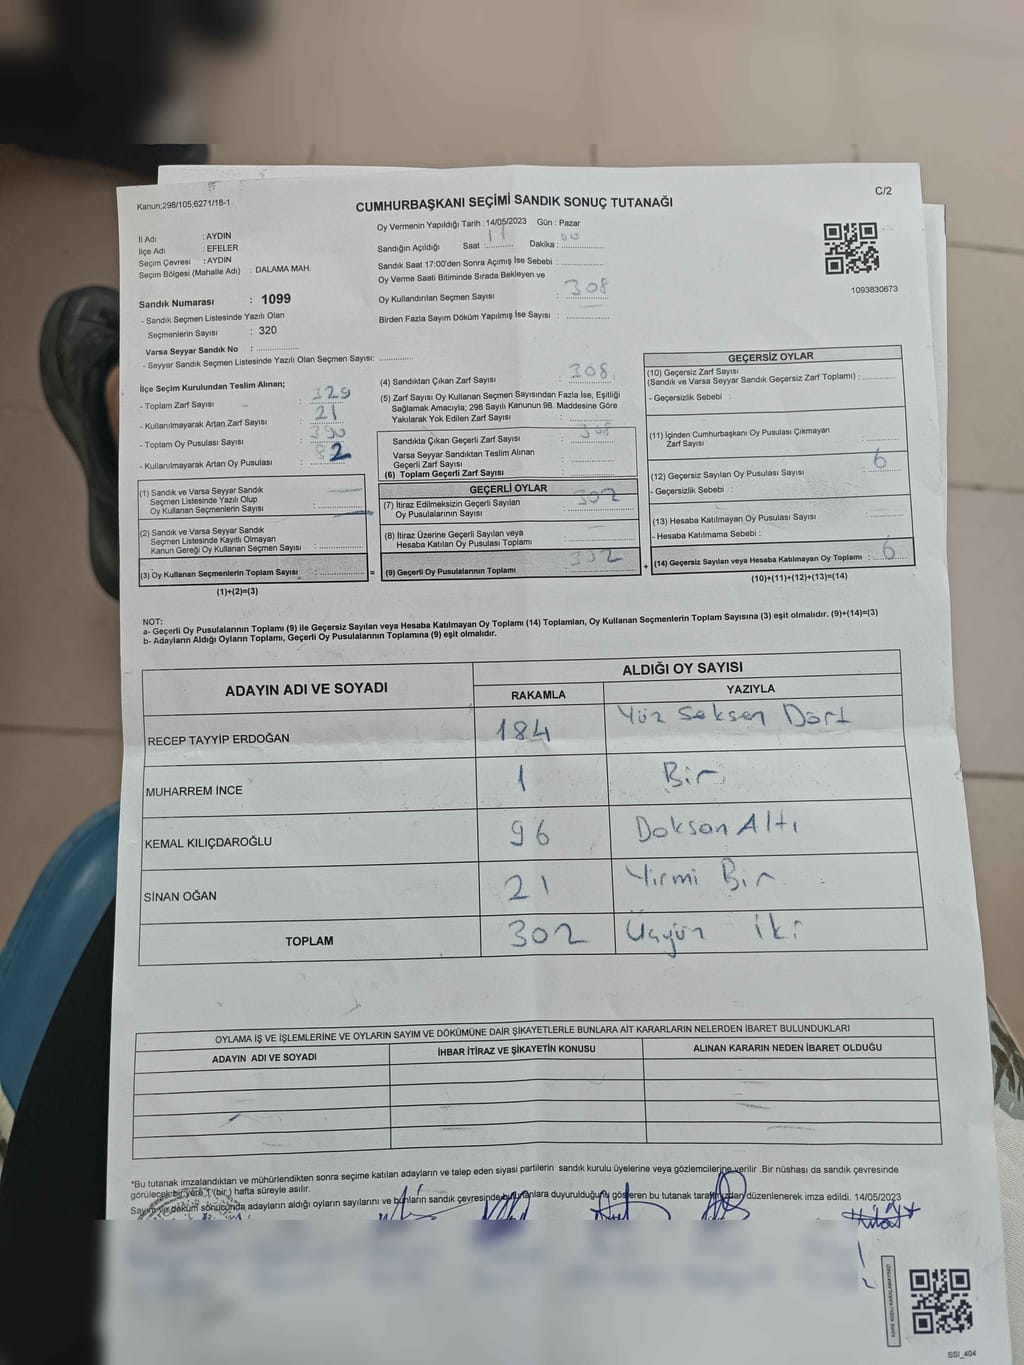 C/2
Kanun;298/105;6271/18-1
CUMHURBAŞKANI SEÇİMİ SANDIK SONUÇ TUTANAĞI
Oy Vermenin Yapıldığı Tarih : 14/05/2023 Gün : Pazar
İl Adı : AYDIN
İlçe Adı : EFELER
Seçim Çevresi : AYDIN
Seçim Bölgesi (Mahalle Adı) : DALAMA MAH.
Sandığın Açıldığı Saat : Dakika : 00
Sandık Saat 17:00'den Sonra Açımış İse Sebebi :
Oy Verme Saati Bitiminde Sırada Bekleyen ve
Oy Kullandırılan Seçmen Sayısı : 308
Birden Fazla Sayım Döküm Yapılmış İse Sayısı :
1093830673
Sandık Numarası : 1099
- Sandık Seçmen Listesinde Yazılı Olan
Seçmenlerin Sayısı : 320
Varsa Seyyar Sandık No :
- Seyyar Sandık Seçmen Listesinde Yazılı Olan Seçmen Sayısı:
İlçe Seçim Kurulundan Teslim Alınan;
- Toplam Zarf Sayısı : 329
- Kullanılmayarak Artan Zarf Sayısı : 21
- Toplam Oy Pusulası Sayısı :
- Kullanılmayarak Artan Oy Pusulası : 82
(1) Sandık ve Varsa Seyyar Sandık
Seçmen Listesinde Yazılı Olup
Oy Kullanan Seçmenlerin Sayısı :
(2) Sandık ve Varsa Seyyar Sandık
Seçmen Listesinde Kayıtlı Olmayan
Kanun Gereği Oy Kullanan Seçmen Sayısı :
(3) Oy Kullanan Seçmenlerin Toplam Sayısı : =
(1)+(2)=(3)
(4) Sandıktan Çıkan Zarf Sayısı : 308
(5) Zarf Sayısı Oy Kullanan Seçmen Sayısından Fazla İse, Eşitliği
Sağlamak Amacıyla; 298 Sayılı Kanunun 98. Maddesine Göre
Yakılarak Yok Edilen Zarf Sayısı :
Sandıkta Çıkan Geçerli Zarf Sayısı : 308
Varsa Seyyar Sandıktan Teslim Alınan
Geçerli Zarf Sayısı :
(6) Toplam Geçerli Zarf Sayısı :
GEÇERLİ OYLAR
(7) İtiraz Edilmeksizin Geçerli Sayılan
Oy Pusulalarının Sayısı : 302
(8) İtiraz Üzerine Geçerli Sayılan veya
Hesaba Katılan Oy Pusulası Toplamı :
(9) Geçerli Oy Pusulalarının Toplamı : 302 +
GEÇERSİZ OYLAR
(10) Geçersiz Zarf Sayısı
(Sandık ve Varsa Seyyar Sandık Geçersiz Zarf Toplamı) :
- Geçersizlik Sebebi :
(11) İçinden Cumhurbaşkanı Oy Pusulası Çıkmayan
Zarf Sayısı :
(12) Geçersiz Sayılan Oy Pusulası Sayısı : 6
- Geçersizlik Sebebi :
(13) Hesaba Katılmayan Oy Pusulası Sayısı :
- Hesaba Katılmama Sebebi :
(14) Geçersiz Sayılan veya Hesaba Katılmayan Oy Toplamı : 6
(10)+(11)+(12)+(13)=(14)
NOT:
a- Geçerli Oy Pusulalarının Toplamı (9) ile Geçersiz Sayılan veya Hesaba Katılmayan Oy Toplamı (14) Toplamları, Oy Kullanan Seçmenlerin Toplam Sayısına (3) eşit olmalıdır. (9)+(14)=(3)
b- Adayların Aldığı Oyların Toplamı, Geçerli Oy Pusulalarının Toplamına (9) eşit olmalıdır.
ADAYIN ADI VE SOYADI ALDIĞI OY SAYISI
RAKAMLA YAZIYLA
RECEP TAYYİP ERDOĞAN 184 Yüz Seksen Dört
MUHARREM İNCE 1 Bir
KEMAL KILIÇDAROĞLU 96 Doksan Altı
SİNAN OĞAN 21 Yirmi Bir
TOPLAM 302 Üçyüz İki
OYLAMA İŞ VE İŞLEMLERİNE VE OYLARIN SAYIM VE DÖKÜMÜNE DAİR ŞİKAYETLERLE BUNLARA AİT KARARLARIN NELERDEN İBARET BULUNDUKLARI
ADAYIN ADI VE SOYADI İHBAR İTİRAZ VE ŞİKAYETİN KONUSU ALINAN KARARIN NEDEN İBARET OLDUĞU
*Bu tutanak imzalandıktan ve mühürlendikten sonra seçime katılan adayların ve talep eden siyasi partilerin sandık kurulu üyelerine veya gözlemcilerine verilir .Bir nüshası da sandık çevresinde
görülecek bir yere 1 (bir ) hafta süreyle asılır.
Sayım ve döküm sonucunda adayların aldığı oyların sayılarını ve bunların sandık çevresinde bulunanlara duyurulduğunu gösteren bu tutanak tarafımızdan düzenlenerek imza edildi. 14/05/2023
SSI_404